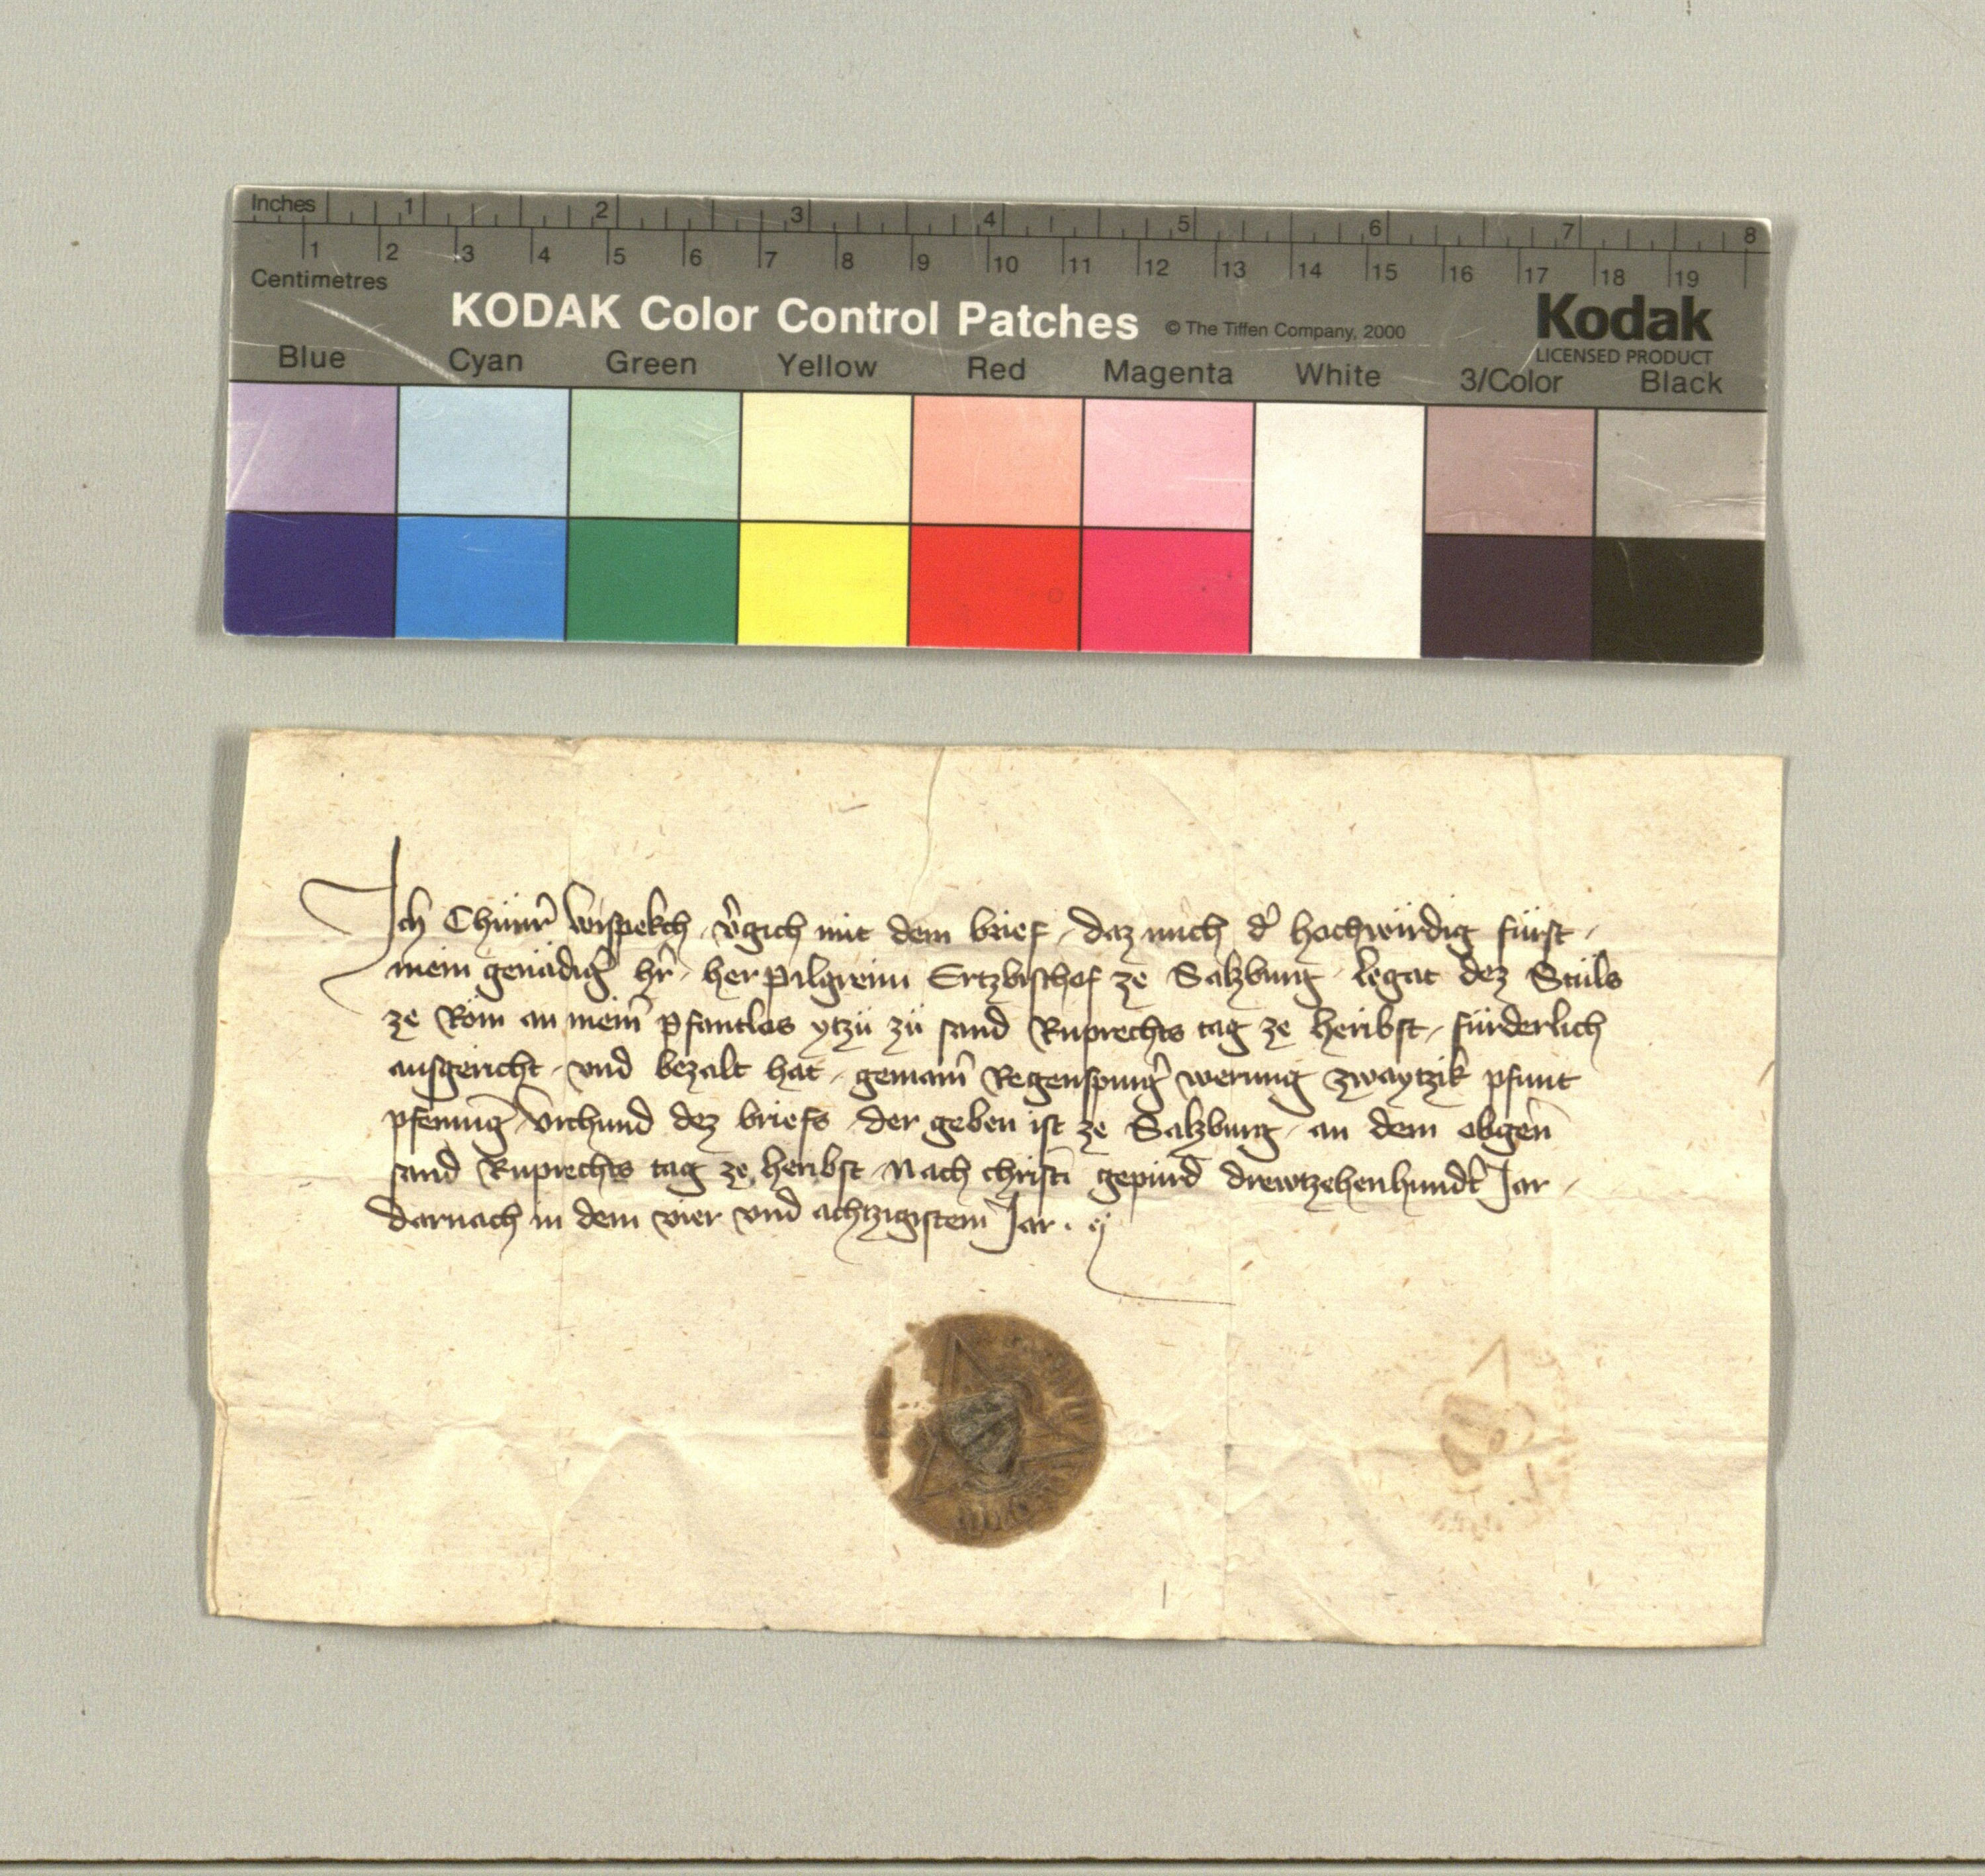 Inches 1 2 3 4 5 6 7 8
1 2 3 4 5 6 7 8 9 10 11 12 13 14 15 16 17 18 19
Centimetres
KODAK Color Control Patches © The Tiffen Company, 2000 Kodak
LICENSED PRODUCT
Blue Cyan Green Yellow Red Magenta White 3/Color Black
Ich Chunr̄ Wispekch v̄gich mit dem brief daz mich d̄ hochwirdig fürst
mein genadiḡ hr̄ her Pilgreim Ertzbischof ze Salzburg legat dez Stuls
ze Rom an mein̄ pfantlos ytzü zü sand Ruprechts tag ze heribst fürderlich
ausgericht vnd bezalt hat gemain̄ Regenspurḡ werung zwaytzik pfunt
pfenniḡ Vrchund dez briefs der geben ist ze Salzburg an dem obgen̄
sand Ruprechts tag ze heribst Nach christi gepurd drewtzehenhundt̄ Jar
darnach in dem vier vnd achtzigistem Jar